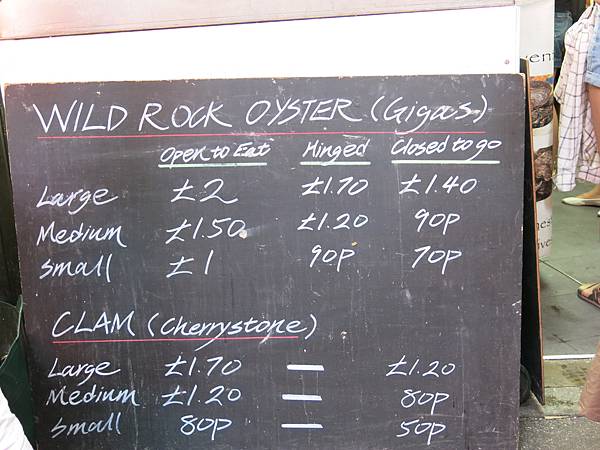 WILD ROCK OYSTER (Gigas)
Open to Eat Hinged Closed to go
Large £2 £1.70 £1.40
Medium £1.50 £1.20 90p
Small £1 90p 70p
CLAM (Cherrystone)
Large £1.70 — £1.20
Medium £1.20 — 80p
Small 80p — 50p